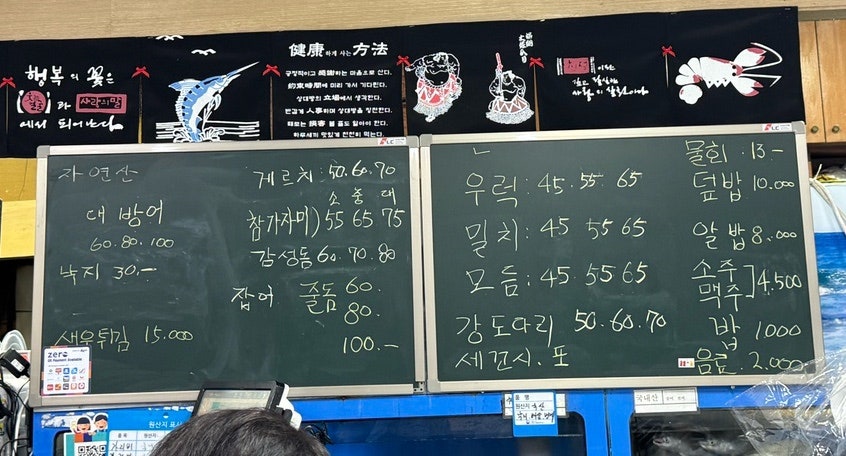 행복의 꽃은
사랑의 말
에서 피어난다
健康하게 사는 方法
긍정적이고 感謝하는 마음으로 산다.
約束時間에 미리 가서 기다린다.
상대방의 立場에서 생각한다.
반갑게 人事하며 상대방을 칭찬한다.
때로는 損害 볼 줄도 알아야 한다.
하루세끼 맛있게 천천히 먹는다.
자연산
대 방어
60.80.100
낙지 30.-
새우튀김 15.000
게르치: 50.60.70
소 중 대
참가자미) 55 65 75
감성돔 60.70.80
잡어 줄돔 60.
80.
100.-
우럭: 45.55.65
밀치: 45 55 65
모듬: 45.55 65
강도다리 50.60.70
세꼬시.포
물회.13.-
덮밥 10.000
알밥 8.000
소주
맥주] 4.500
밥 1000
음료. 2.000
zero
원산지 표시
품목
원산지
품명
원산지
국내산